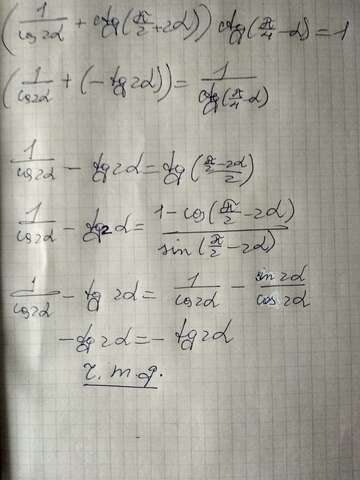 (1/cos2α + ctg(π/2 + 2α)) ctg(π/4 - α) = 1
(1/cos2α + (-tg2α)) = 1/ctg(π/4 - α)
1/cos2α - tg2α = tg((π/2 - 2α)/2)
1/cos2α - tg2α = (1 - cos(π/2 - 2α))/sin(π/2 - 2α)
1/cos2α - tg 2α = 1/cos2α - sin2α/cos2α
-tg2α = - tg2α
r.m.g.